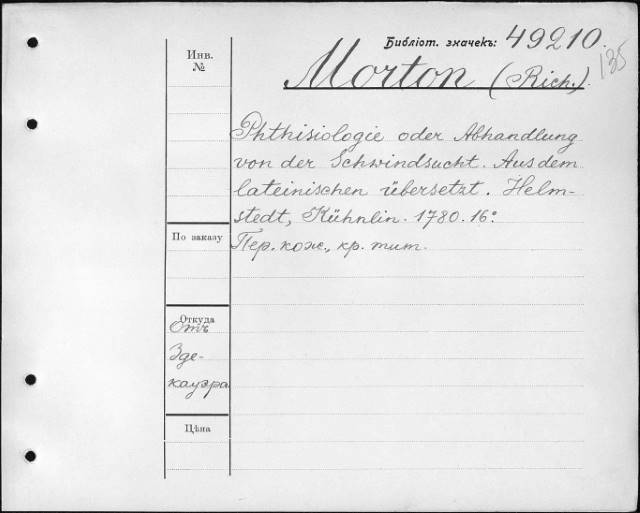 Библіот. значекъ: 49210.
135
Инв.
№
Morton (Rich.).
Phthisiologie oder Abhandlung
von der Schwindsucht. Aus dem
lateinischen übersetzt. Helm-
stedt, Kühnlin. 1780. 16º
По заказу
Пер. кож., кр. тит.
Откуда
Отъ
Зде-
кауэра
Цѣна